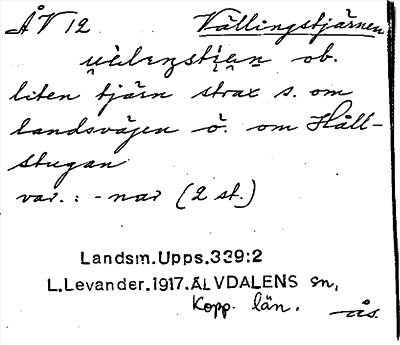 ÅV 12 Vällingstjärnen
ob.
liten tjärn strax s. om
landsvägen ö. om Hått-
stugan
var. : -nar (2 st.)
Landsm.Upps.339:2
L.Levander.1917.ÄLVDALENS sn,
Kopp. län.
ås.